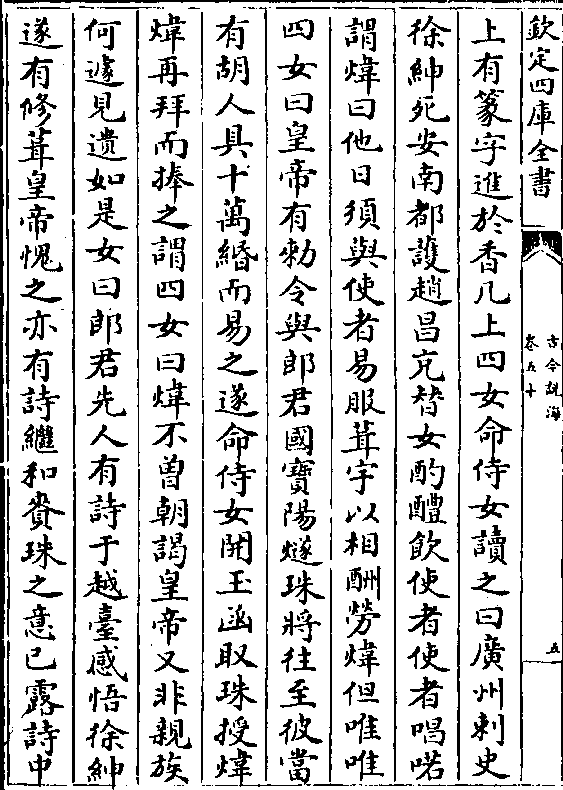 欽定四庫全書
古今説海
卷五十
五
上有篆字進於香几上四女命侍女讀之曰廣州刺史
徐紳死安南都護趙昌充替女酌醴飲使者使者唱喏
謂煒曰他日須與使者易服葺宇以相酬勞煒但唯唯
四女曰皇帝有勑令與郎君國寶陽燧珠將往至彼當
有胡人具十萬緡而易之遂命侍女開玉函取珠授煒
煒再拜而捧之謂四女曰煒不曾朝謁皇帝又非親族
何遽見遺如是女曰郎君先人有詩于越臺感悟徐紳
遂有修葺皇帝愧之亦有詩繼和賚珠之意已露詩中